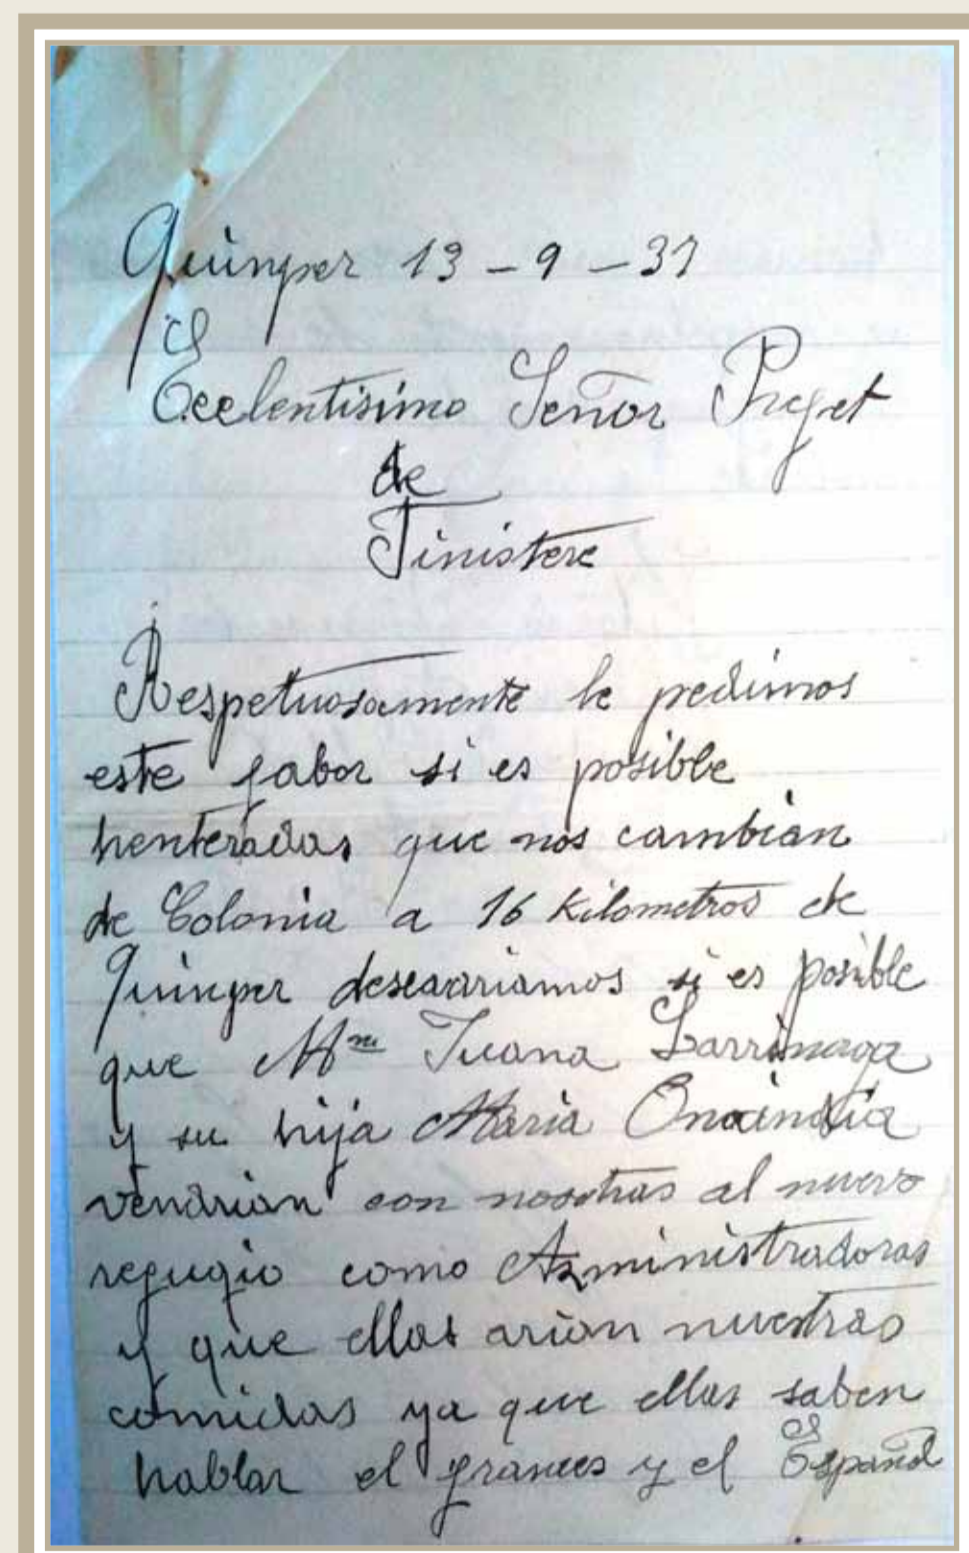 Quimper 13 - 9 - 37
Ecelentisimo Señor Prefet
de
Finistere
Respetuosamente le pedimos
este fabor si es posible
henteradas que nos cambian
de Colonia a 16 Kilometros de
Quimper desearíamos si es posible
que Mme Juana Larrinaga
y su hija Maria Onaindia
vendrian con nosotras al nuevo
refugio como Azministradoras
y que ellas arian nuestras
comidas ya que ellas saben
hablar el franses y el Español